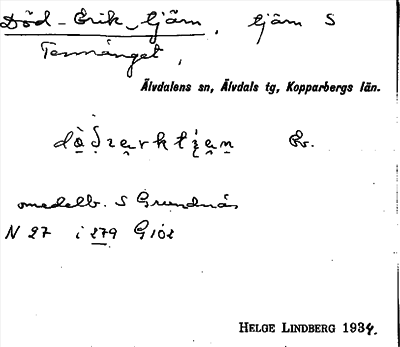 Död-Erik-tjärn, tjärn S
Tennånget,
Älvdalens sn, Älvdals tg, Kopparbergs län.
omedelb. S Grundnäs
N 27 i 279 G102
HELGE LINDBERG 1934.